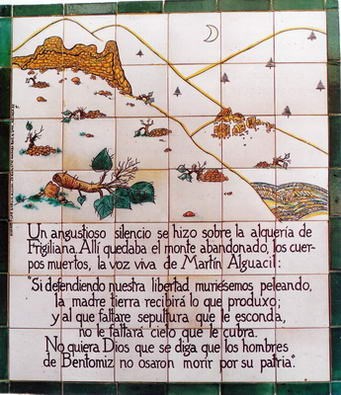 Un angustioso silencio se hizo sobre la alquería de
Frigiliana. Allí quedaba el monte abandonado, los cuer-
pos muertos, la voz viva de Martín Alguacil:
"Si defendiendo nuestra libertad muriesemos peleando,
la madre tierra recibirá lo que produxo;
y al que faltare sepultura que le esconda,
no le faltará cielo que le cubra.
No quiera Dios que se diga que los hombres
de Bentomiz no osaron morir por su patria".